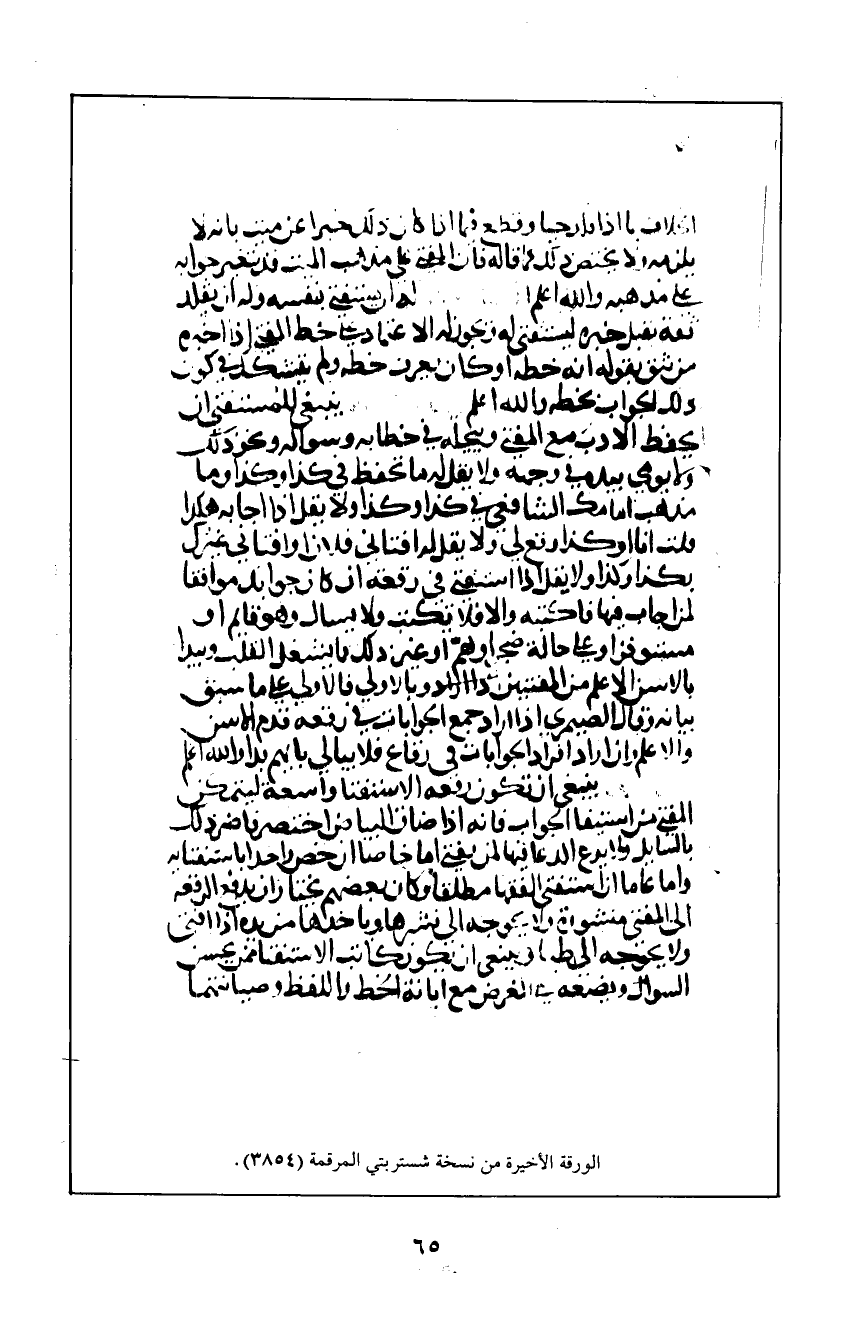 بلزمه ولا يختص ذلك قاله فان المفتي على مذهب الميت قد يتغير جوابه
على مذهبه والله اعلم له ان يستفتي بنفسه وله ان يقلد
ثقة يقبل خبره ليستفتي له ويجوز له الاعتماد على خط المفتي إذا اخبره
من يثق بقوله انه خطه او كان يعرف خطه ولم يتشكك في كون
ذلك الجواب بخطه والله اعلم ينبغي للمستفتي ان
يحفظ الادب مع المفتي ويبجله في خطابه وسواله ونحو ذلك
ولا يومي بيده في وجهه ولا يقل له ما تحفظ في كذا وكذا وما
مذهب امامك الشافعي في كذا وكذا ولا يقل اذا اجابه هكذا
قلت انا او كذا وقع لي ولا يقل له افتاني فلان او افتاني غيرك
بكذا وكذا ولا يقل اذا استفتى في رقعة ان كان جوابك موافقا
لمن اجاب فيها فاكتبه والا فلا تكتب ولا يسال وهو قايم او
مستوفز او على حالة ضجر او هم او غير ذلك مما يشغل القلب ويبدا
بالاسن الاعلم من المفتين وبالاولى فالاولى على ما سبق
بيانه وقال الصيمري اذا اراد جمع الجوابات في رقعة قدم الاسن
والاعلم وان اراد افراد الجوابات في رقاع فلا يبالي بايهم بدا والله اعلم
ينبغي ان تكون رقعة الاستفتا واسعة ليتمكن
المفتي من استيفا الجواب فانه اذا ضاق البياض اختصر فاضر ذلك
بالسايل ولا يدع الدعا فيها لمن يفتي اما خاصا ان خص واحدا باستفتايه
واما عاما ان استفتى الفقها مطلقا وكان بعضهم يختار ان يدفع الرقعة
الى المفتي منشورة ولا يحوجه الى نشرها وياخذها من يده اذا افتى
ولا يحوجه الى طيها وينبغي ان يكون كاتب الاستفتا ممن يحسن
السوال ويضعه على الغرض مع ابانة الخط واللفظ وصيانتهما
الورقة الأخيرة من نسخة شستربتي المرقمة (٣٨٥٤).
٦٥